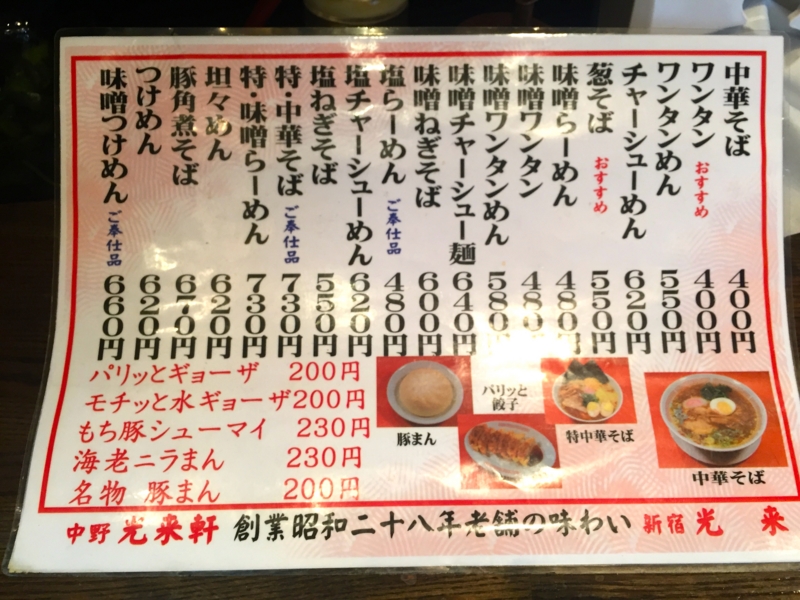 中華そば 400円
ワンタン おすすめ 400円
ワンタンめん 550円
チャーシューめん 620円
葱そば おすすめ 550円
味噌らーめん 480円
味噌ワンタン 480円
味噌ワンタンめん 580円
味噌チャーシュー麺 640円
味噌ねぎそば 600円
塩らーめん ご奉仕品 480円
塩チャーシューめん 620円
塩ねぎそば 550円
特・中華そば ご奉仕品 730円
特・味噌らーめん 730円
坦々めん 620円
豚角煮そば 670円
つけめん 620円
味噌つけめん ご奉仕品 660円
パリッとギョーザ 200円
モチッと水ギョーザ200円
もち豚シューマイ 230円
海老ニラまん 230円
名物 豚まん 200円
豚まん
パリッと
餃子
特中華そば
中華そば
中野 光来軒 創業昭和二十八年老舗の味わい 新宿 光 来